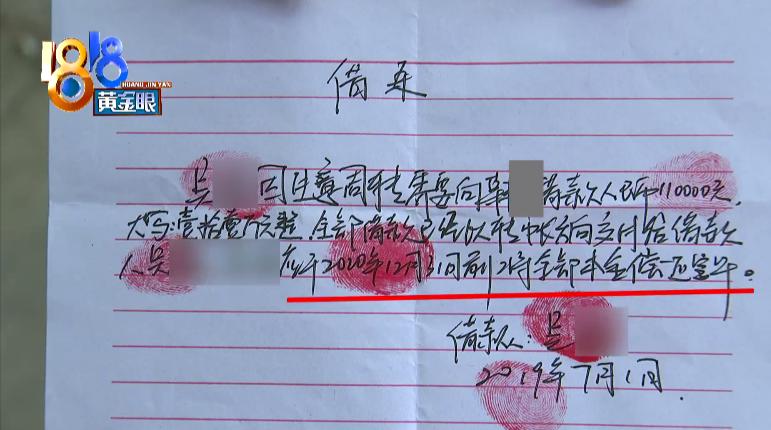 1818
HUANG JIN YAN
黄金眼
借条
吴 因生意周转需要向 借款人民币110000元,
大写:壹拾壹万整.全部借款已经以转帐方向交付给借款
人吴 应于2020年12月31日前将全部本金偿还完毕。
借款人:吴
2019年7月1日.